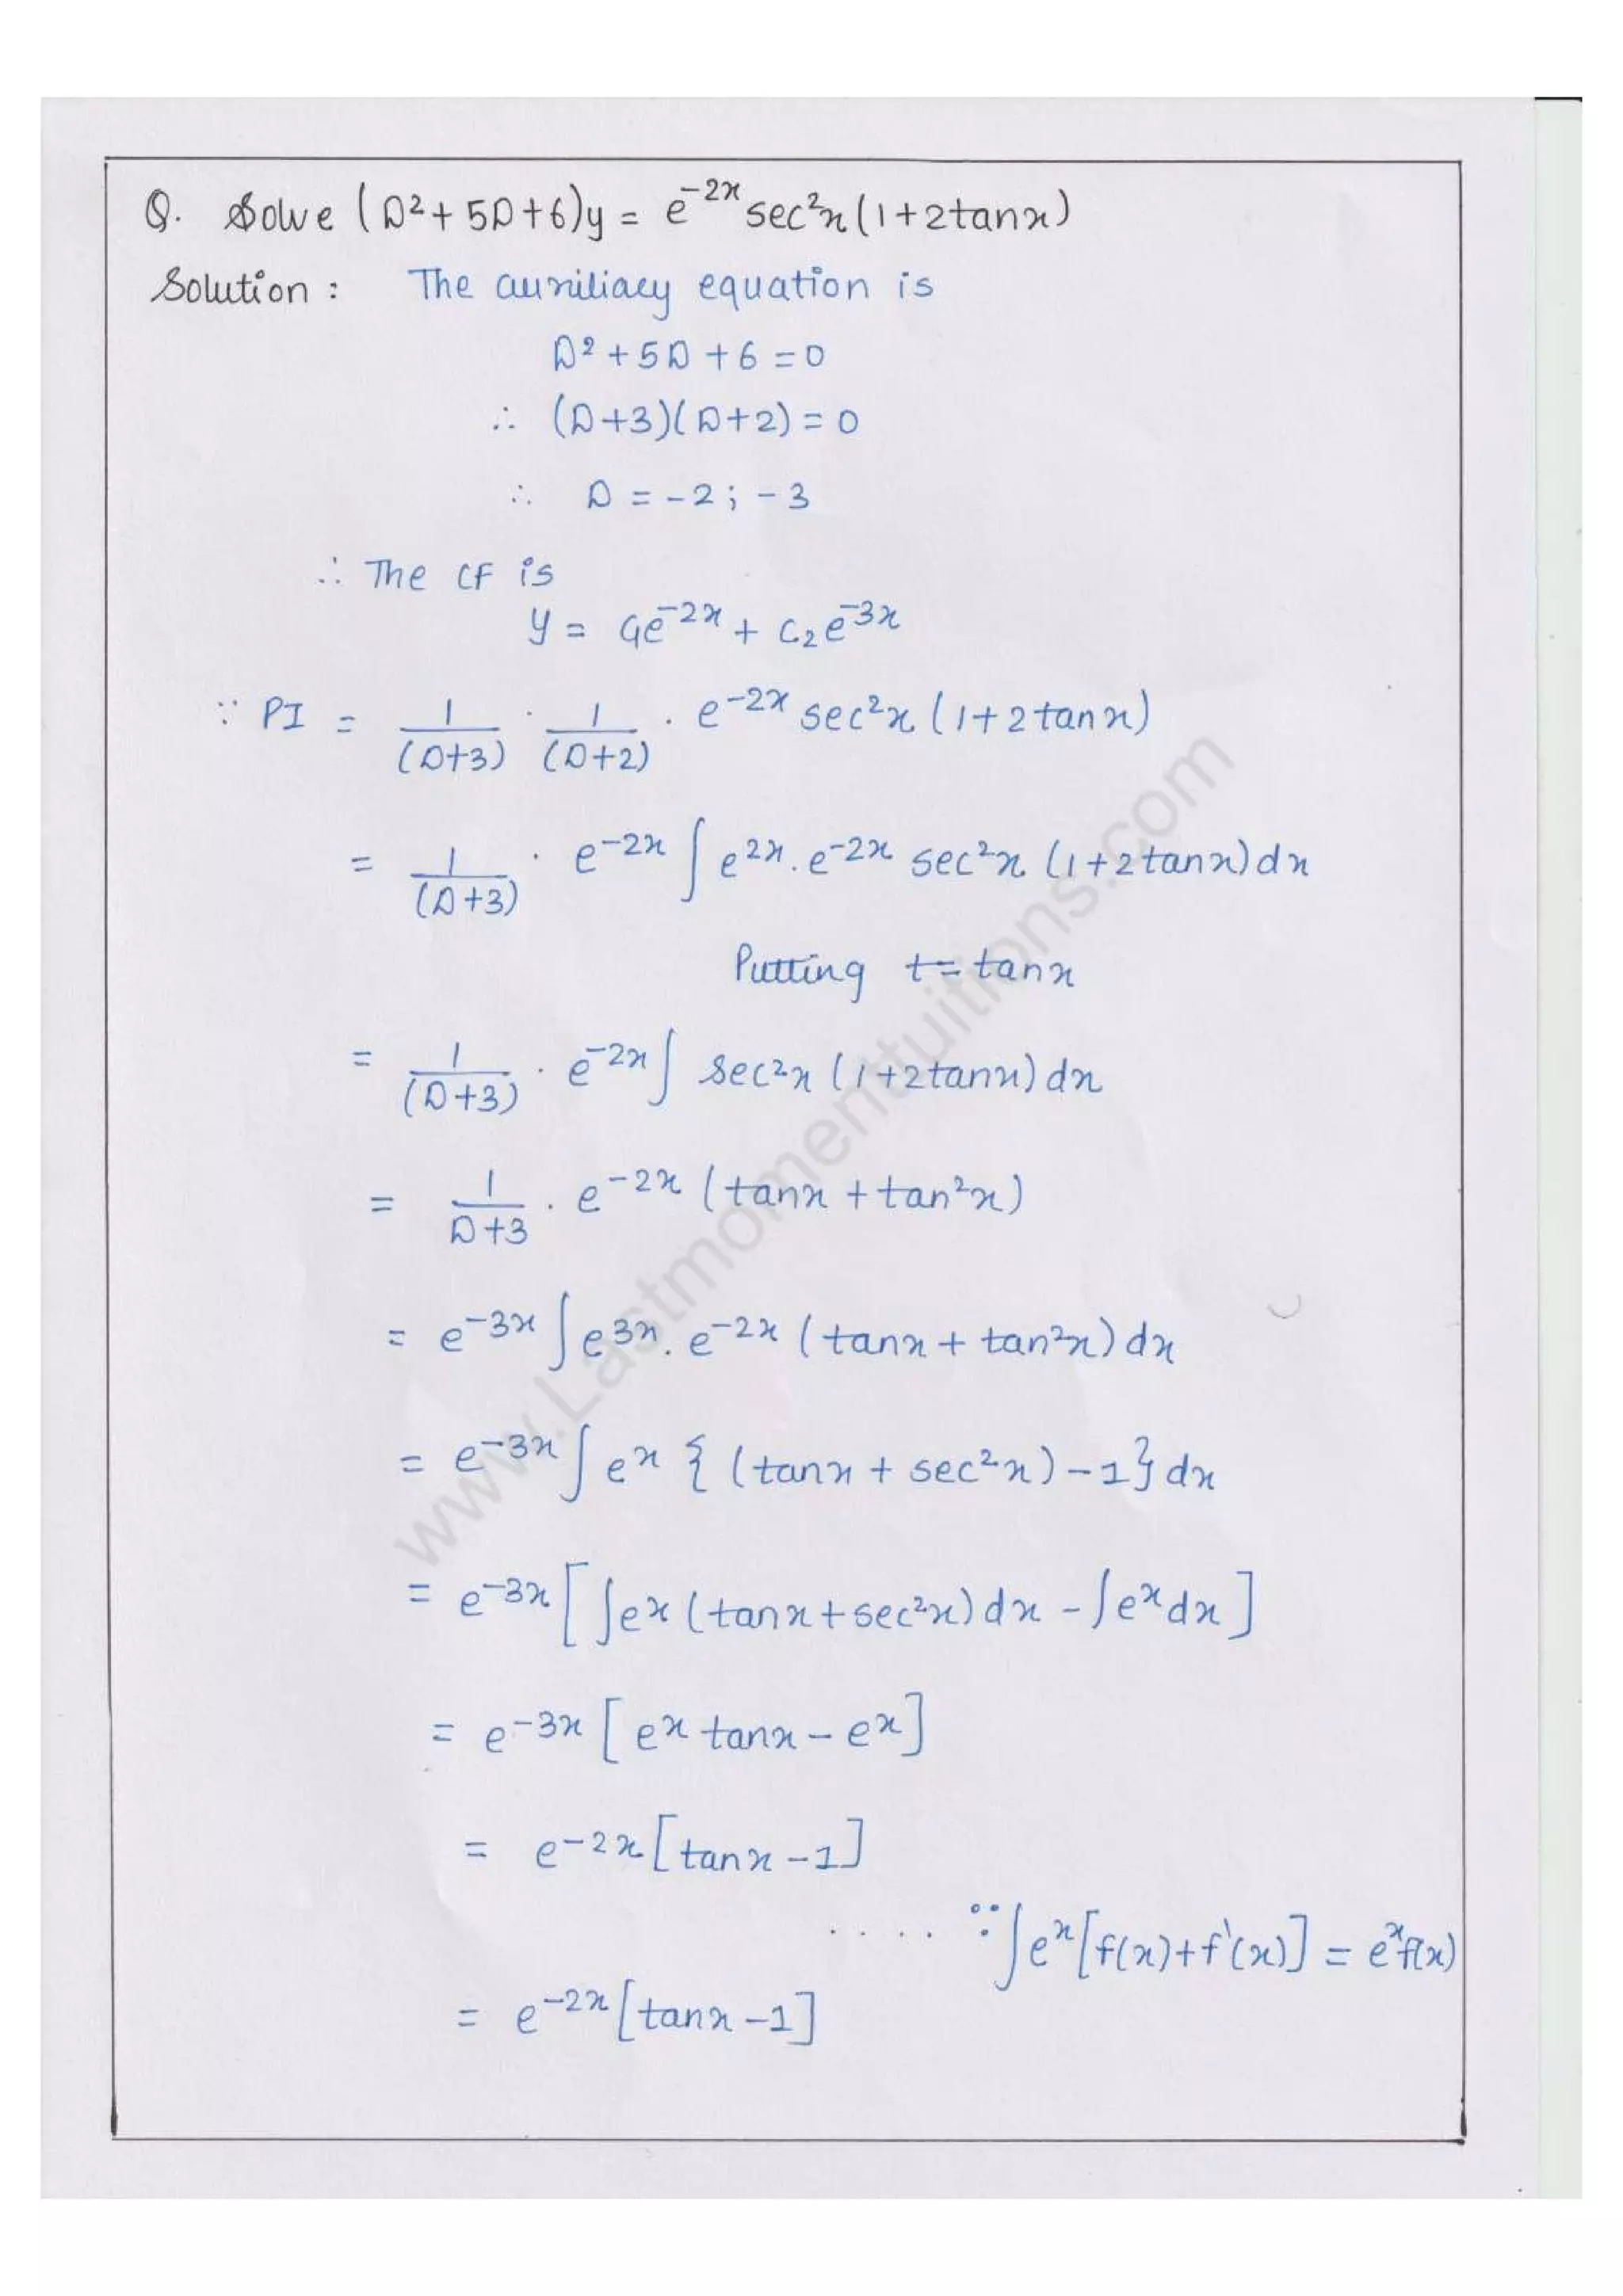 Q. Solve (D²+5D+6)y = e⁻²ˣ sec²x (1+2tanx)
Solution : The auxiliary equation is
D²+5D+6=0
∴ (D+3)(D+2)=0
∴ D = -2; -3
∴ The CF is
y = C₁e⁻²ˣ + C₂e⁻³ˣ
∵ PI = 1/(D+3) · 1/(D+2) · e⁻²ˣ sec²x (1+2tanx)
= 1/(D+3) · e⁻²ˣ ∫ e²ˣ . e⁻²ˣ sec²x (1+2tanx)dx
Putting t=tanx
= 1/(D+3) · e⁻²ˣ ∫ sec²x (1+2tanx)dx
= 1/D+3 . e⁻²ˣ (tanx + tan²x)
= e⁻³ˣ ∫ e³ˣ . e⁻²ˣ (tanx + tan²x)dx
= e⁻³ˣ ∫ eˣ { (tanx + sec²x) -1} dx
= e⁻³ˣ [ ∫ eˣ (tanx+sec²x)dx - ∫ eˣdx ]
= e⁻³ˣ [ eˣ tanx - eˣ ]
= e⁻²ˣ [tanx -1]
.... ∵ ∫ eˣ [f(x)+f'(x)] = eˣf(x)
= e⁻²ˣ [tanx -1]
www.Lastmomenttuitions.com